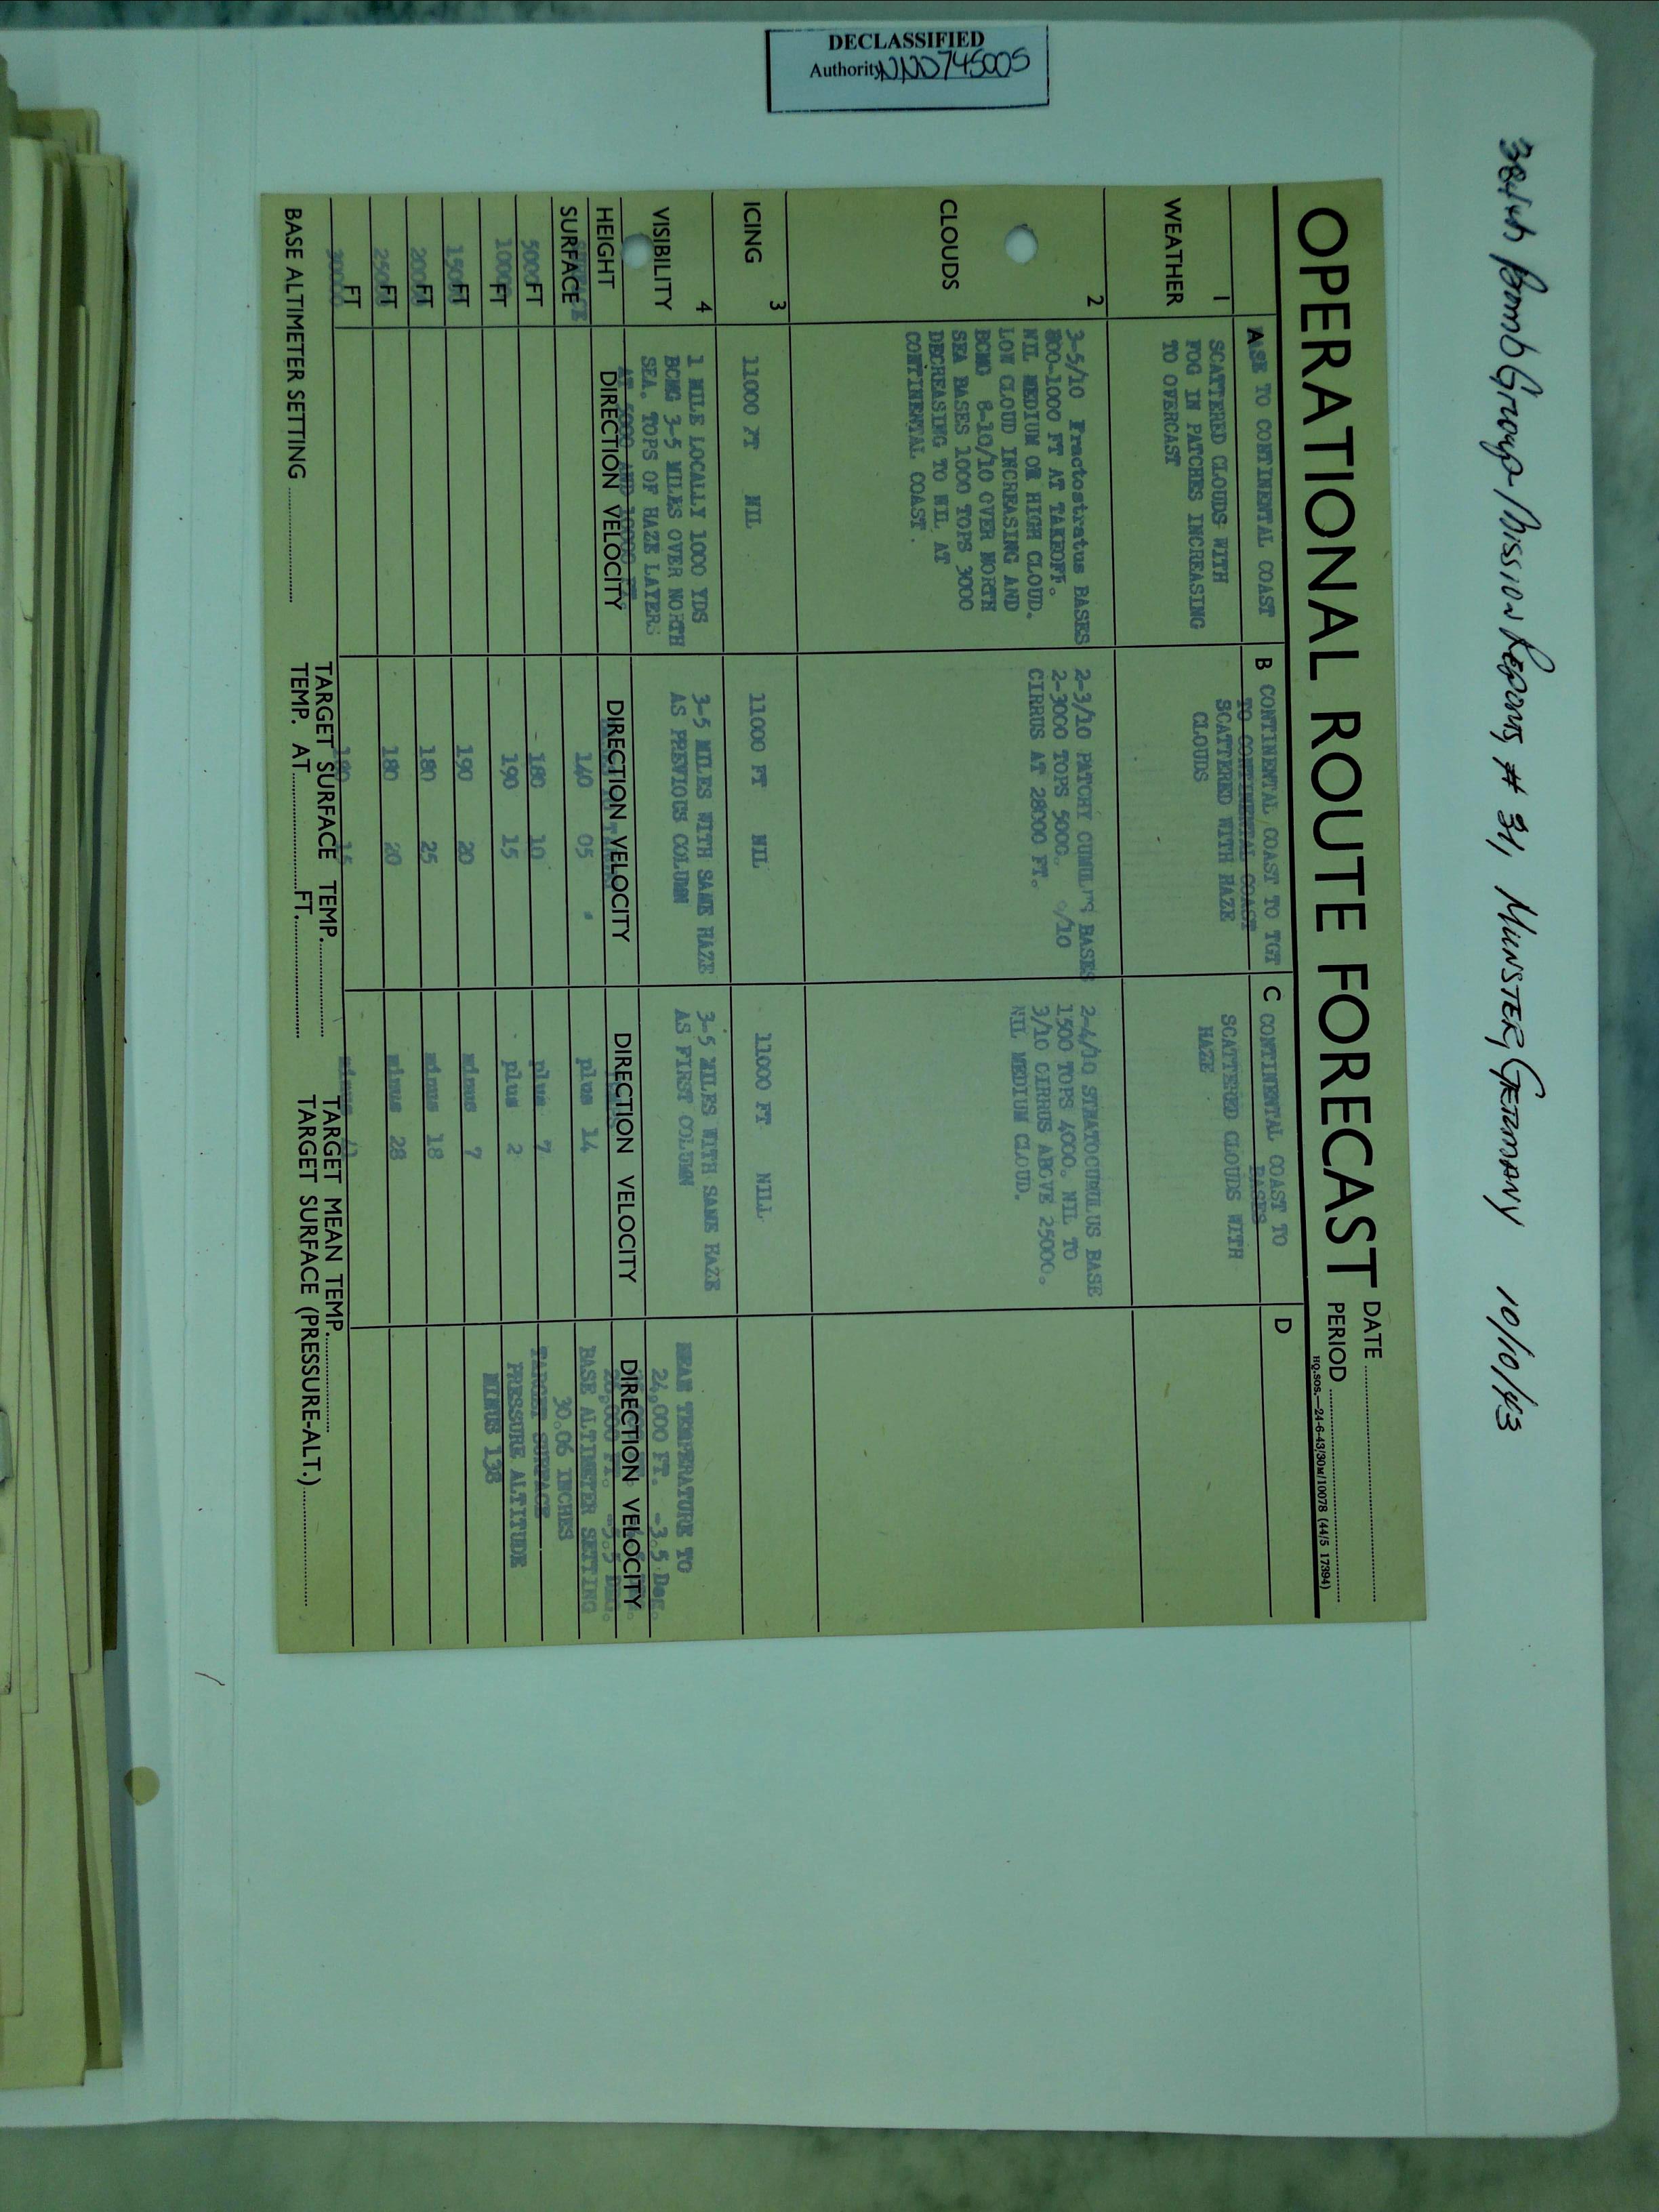 DECLASSIFIED
Authority NND745005
384th Bomb Group Mission Reports, # 31, MUNSTER, GERMANY 10/10/43
OPERATIONAL ROUTE FORECAST
DATE
PERIOD
HQ.SOS.—24-6-43/30M/10078 (44/5 17394)
ASE TO CONTINENTAL COAST
B CONTINENTAL COAST TO TGT
TO CONTINENTAL COAST
C CONTINENTAL COAST TO
BASES
D
1
WEATHER
SCATTERED CLOUDS WITH
FOG IN PATCHES INCREASING
TO OVERCAST
SCATTERED WITH HAZE
CLOUDS
SCATTERED CLOUDS WITH
HAZE
2
CLOUDS
3-5/10 Fractostratus BASES
800-1000 FT AT TAKEOFF.
NIL MEDIUM OR HIGH CLOUD.
LOW CLOUD INCREASING AND
BCMG 8-10/10 OVER NORTH
SEA BASES 1000 TOPS 3000
DECREASING TO NIL AT
CONTINENTAL COAST.
2-3/10 PATCHY CUMULUS BASES
2-3000 TOPS 5000. /10
CIRRUS AT 28000 FT.
2-4/10 STRATOCUMULUS BASE
1500 TOPS 4000. NIL TO
3/10 CIRRUS ABOVE 25000.
NIL MEDIUM CLOUD.
3
ICING
11000 FT NIL
11000 FT NIL
11000 FT NILL
4
VISIBILITY
1 MILE LOCALLY 1000 YDS
BCMG 3-5 MILES OVER NORTH
SEA. TOPS OF HAZE LAYERS
AT 5000 AND 10000 FT
3-5 MILES WITH SAME HAZE
AS PREVIOUS COLUMN
3-5 MILES WITH SAME HAZE
AS FIRST COLUMN
MEAN TEMPERATURE TO
24,000 FT. -3.5 Deg.
HEIGHT DIRECTION VELOCITY DIRECTION VELOCITY DIRECTION VELOCITY DIRECTION VELOCITY
SURFACE 140 05 plus 14 BASE ALTIMETER SETTING
30.06 INCHES
5000 FT 180 10 plus 7 TARGET SURFACE
10000 FT 190 15 plus 2 PRESSURE ALTITUDE
MINUS 138
15000 FT 190 20 minus 7
20000 FT 180 25 minus 18
25000 FT 180 20 minus 28
30000 FT 180 15 minus
BASE ALTIMETER SETTING
TARGET SURFACE TEMP.
TEMP. AT FT.
TARGET MEAN TEMP.
TARGET SURFACE (PRESSURE-ALT.)